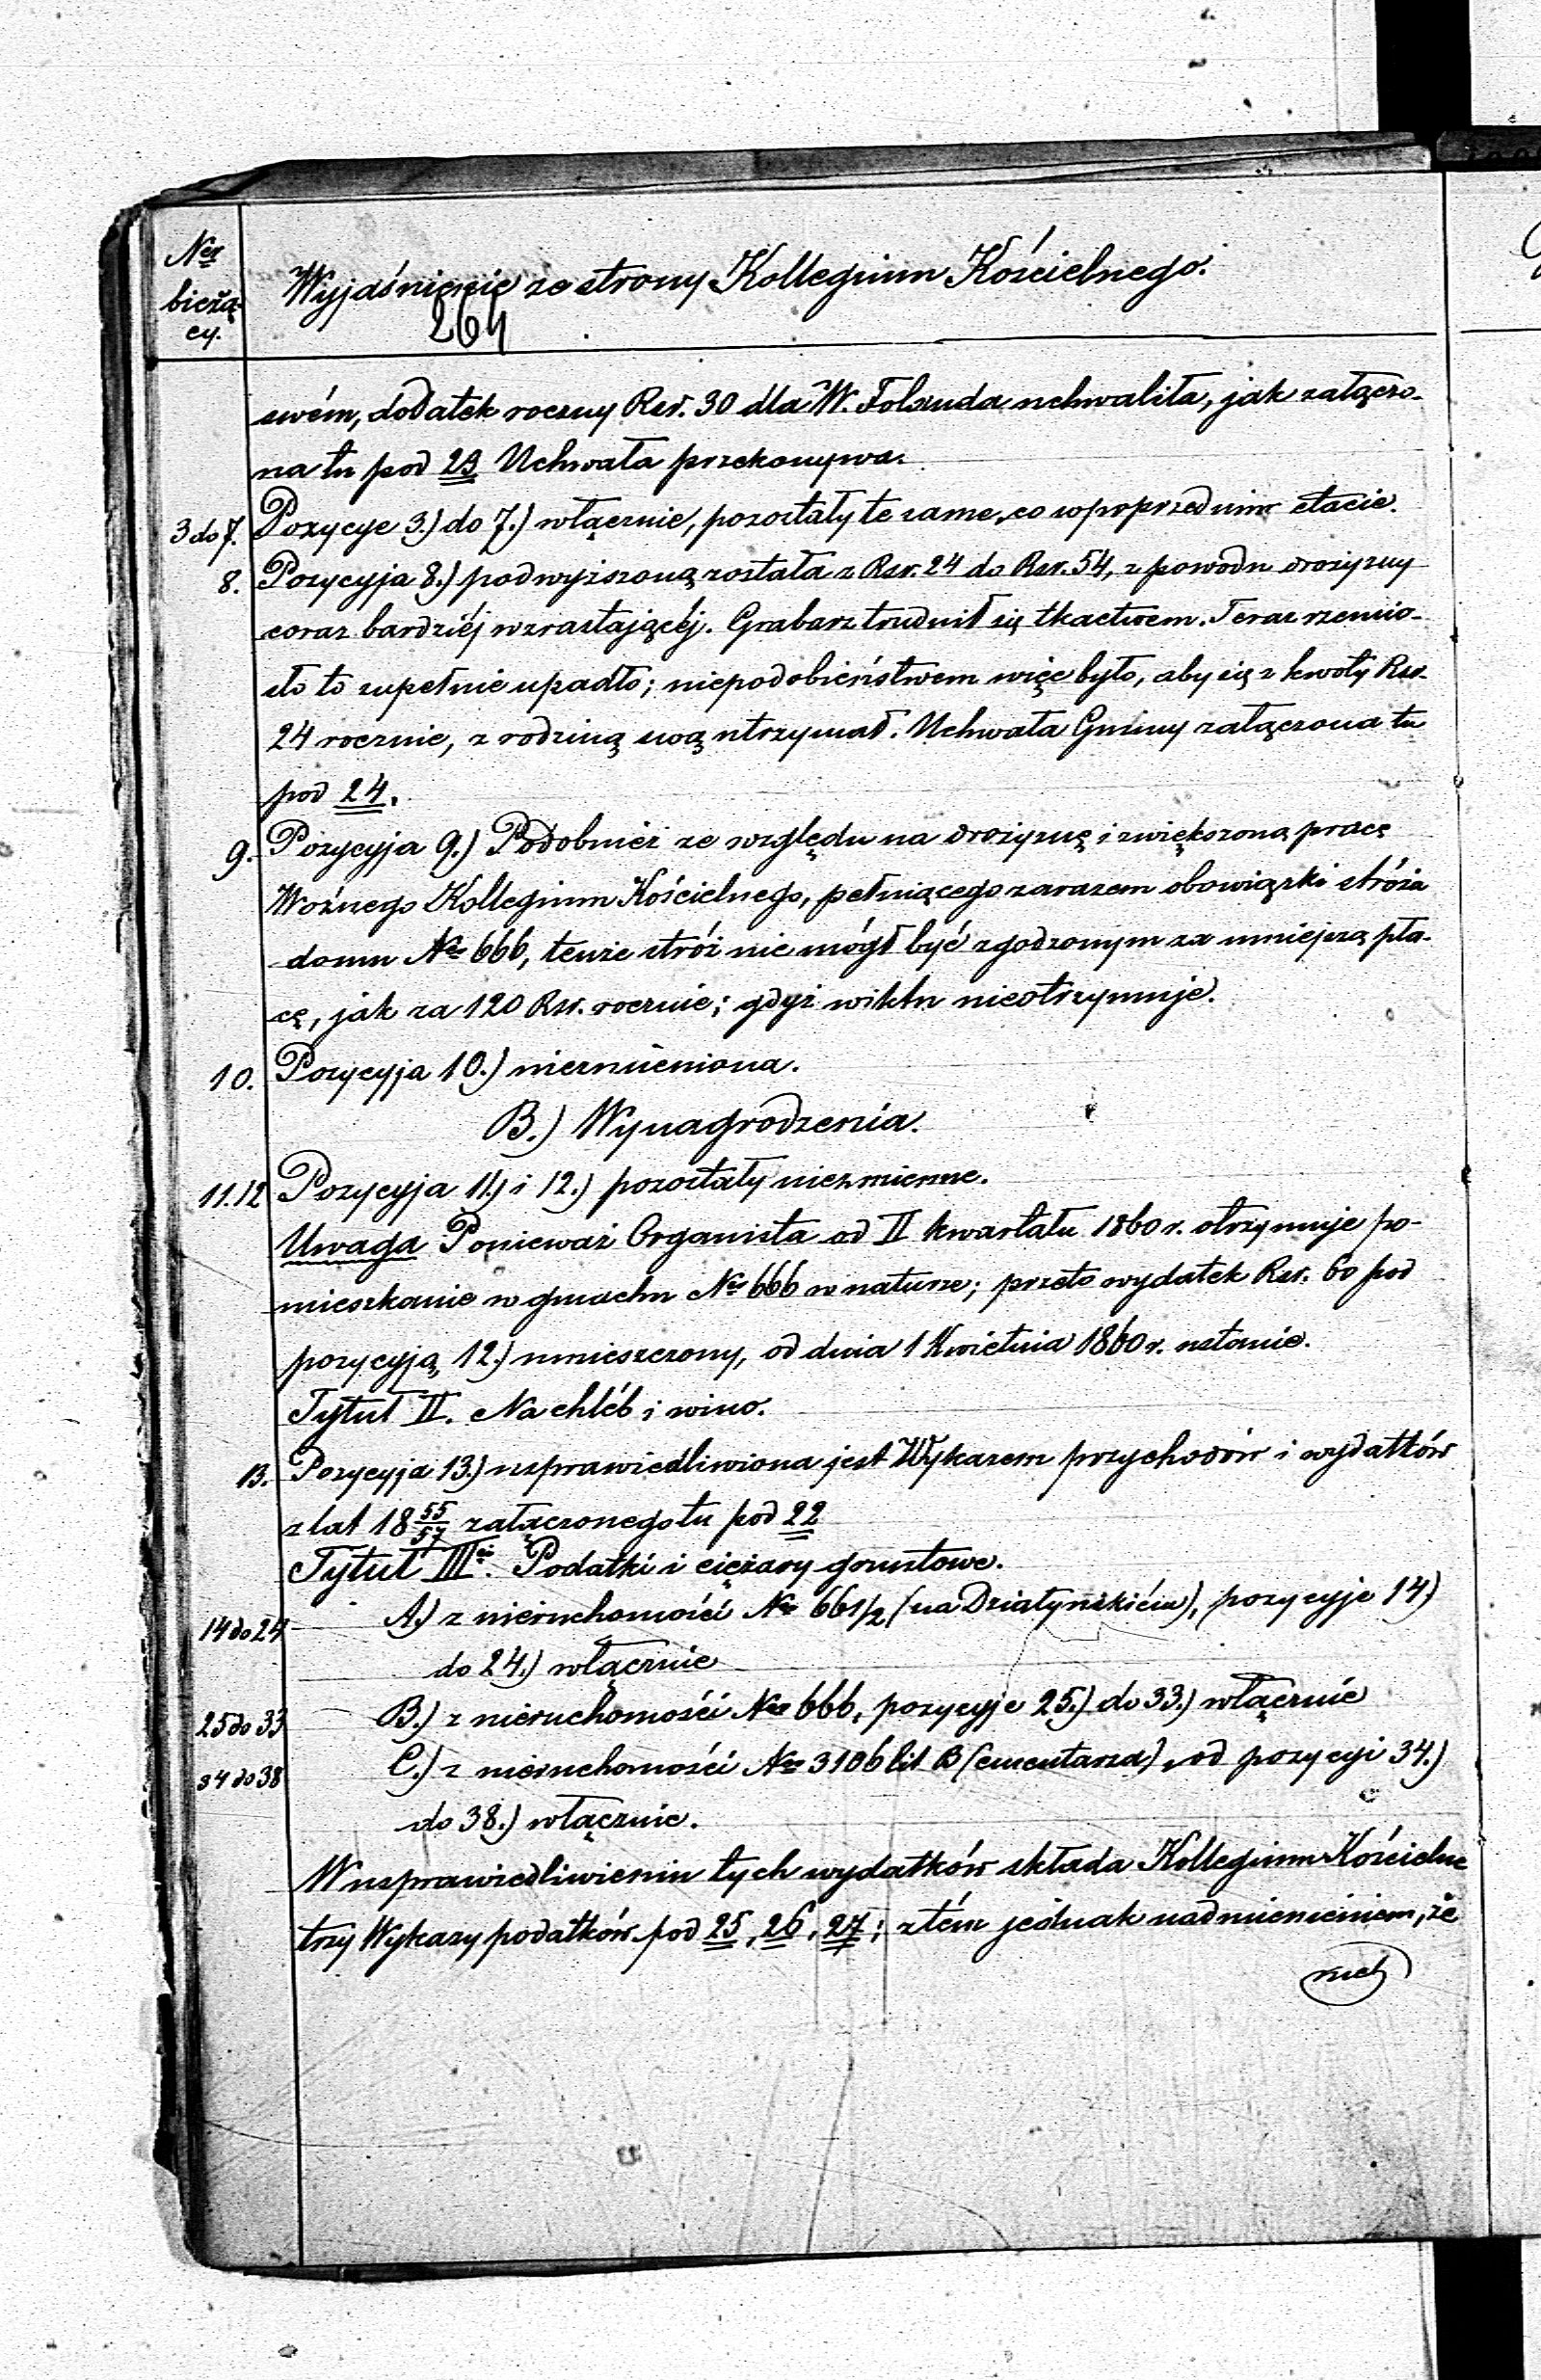 Ner
bieżą-
cy.
Wyjaśnienie ze strony Kollegium Kościelnego.
264
swém, dodatek roczny Rsr. 30 dla W. Folanda uchwaliła, jak załączo-
na tu pod 23 Uchwała przekonywa.
3 do 7. Pozycye 3.) do 7.) włącznie, pozostały te same, co w poprzednim etacie.
8. Pozycyja 8.) podwyższoną została z Rsr. 24 do Rsr. 54, z powodu drożyzny
coraz bardziéj wzrastającéj. Grabarz trudnił się tkactwem. Teraz rzemio-
sło to zupełnie upadło; niepodobieństwem więc było, aby się z kwoty Rsr.
24 rocznie, z rodziną swą utrzymał. Uchwała Gminy załączona tu
pod 24.
9. Pozycyja 9.) Podobnież ze względu na drożyznę i zwiększoną pracę
Woźnego Kollegium Kościelnego, pełniącego zarazem obowiązki stróża
domu No 666, tenże stróż nie mógł być zgodzonym za mniejszą pła-
cę, jak za 120 Rsr. rocznie; gdyż wiktu nieotrzymuje.
10. Pozycyja 10.) niezmieniona.
B.) Wynagrodzenia.
11.12 Pozycyja 11.) i 12.) pozostały niezmienne.
Uwaga Ponieważ Organista od II kwartału 1860 r. otrzymuje po-
mieszkanie w gmachu No 666 w naturze; przeto wydatek Rsr. 60 pod
pozycyją 12.) umieszczony, od dnia 1 Kwietnia 1860 r. ustanie.
Tytuł II. Na chléb i wino.
13. Pozycyja 13.) usprawiedliwiona jest Wykazem przychodów i wydatków
z lat 18 55/57 załączonego tu pod 22
Tytuł III. Podatki i ciężary gruntowe.
14 do 24 A.) z nieruchomości No 661/2 (na Działyńskiém), pozycyje 14)
do 24.) włącznie
25 do 33 B.) z nieruchomości No 666, pozycyje 25.) do 33.) włącznie
34 do 38 C.) z nieruchomości No 3106 lit B (cmentarza), od pozycyi 34.)
do 38.) włącznie.
W usprawiedliwieniu tych wydatków składa Kollegium Kościelne
trzy Wykazy podatków pod 25, 26, 27; z tém jednak nadmienieniem, że